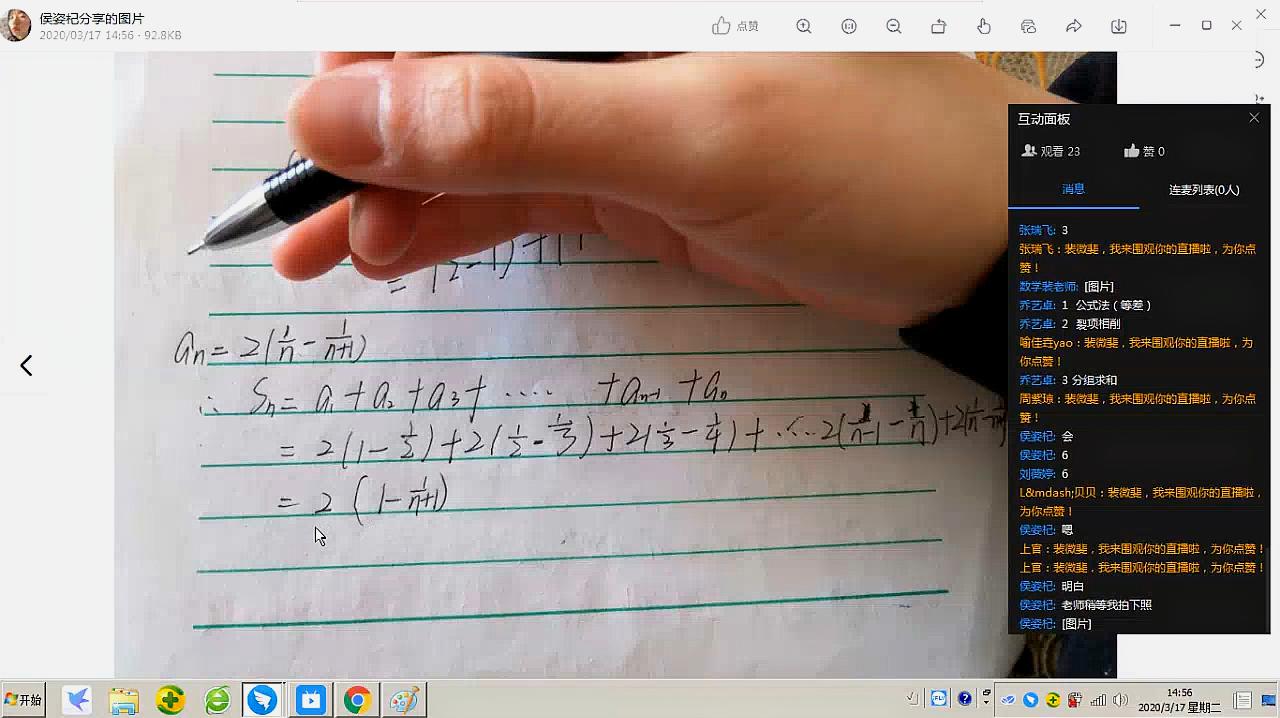 侯姿杞分享的图片
2020/03/17 14:56 · 92.8KB
点赞
互动面板
观看 23
赞 0
消息
连麦列表(0人)
张瑞飞: 3
张瑞飞：裴微斐，我来围观你的直播啦，为你点
赞！
数学裴老师: [图片]
乔艺卓: 1 公式法（等差）
乔艺卓: 2 裂项相削
喻佳垚yao：裴微斐，我来围观你的直播啦，为
你点赞！
乔艺卓: 3 分组求和
周紫琼：裴微斐，我来围观你的直播啦，为你点
赞！
侯姿杞: 会
侯姿杞: 6
刘薇婷: 6
L&mdash;贝贝：裴微斐，我来围观你的直播啦，
为你点赞！
侯姿杞: 嗯
上官：裴微斐，我来围观你的直播啦，为你点赞！
上官：裴微斐，我来围观你的直播啦，为你点赞！
侯姿杞: 明白
侯姿杞: 老师稍等我拍下照
侯姿杞: [图片]
an = 2(1/n - 1/(n+1))
∴ Sn = a1 + a2 + a3 + ···· + an-1 + an
= 2(1 - 1/2) + 2(1/2 - 1/3) + 2(1/3 - 1/4) + ··· 2(1/(n-1) - 1/n) + 2(1/n -
= 2 (1 - 1/(n+1))
开始
14:56
2020/3/17 星期二